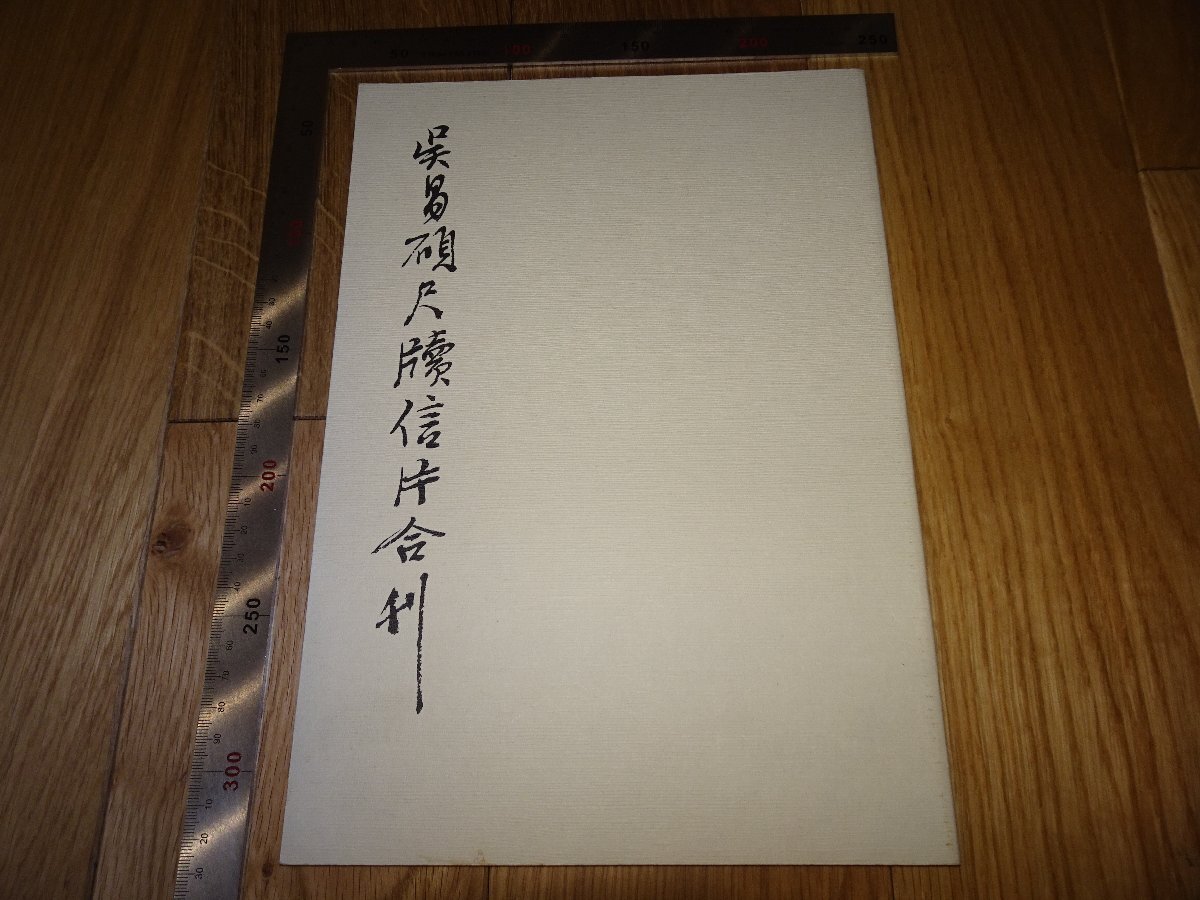 吳昌碩尺牘信片合刊
50 100 150 200 250
50
100
150
200
250
300